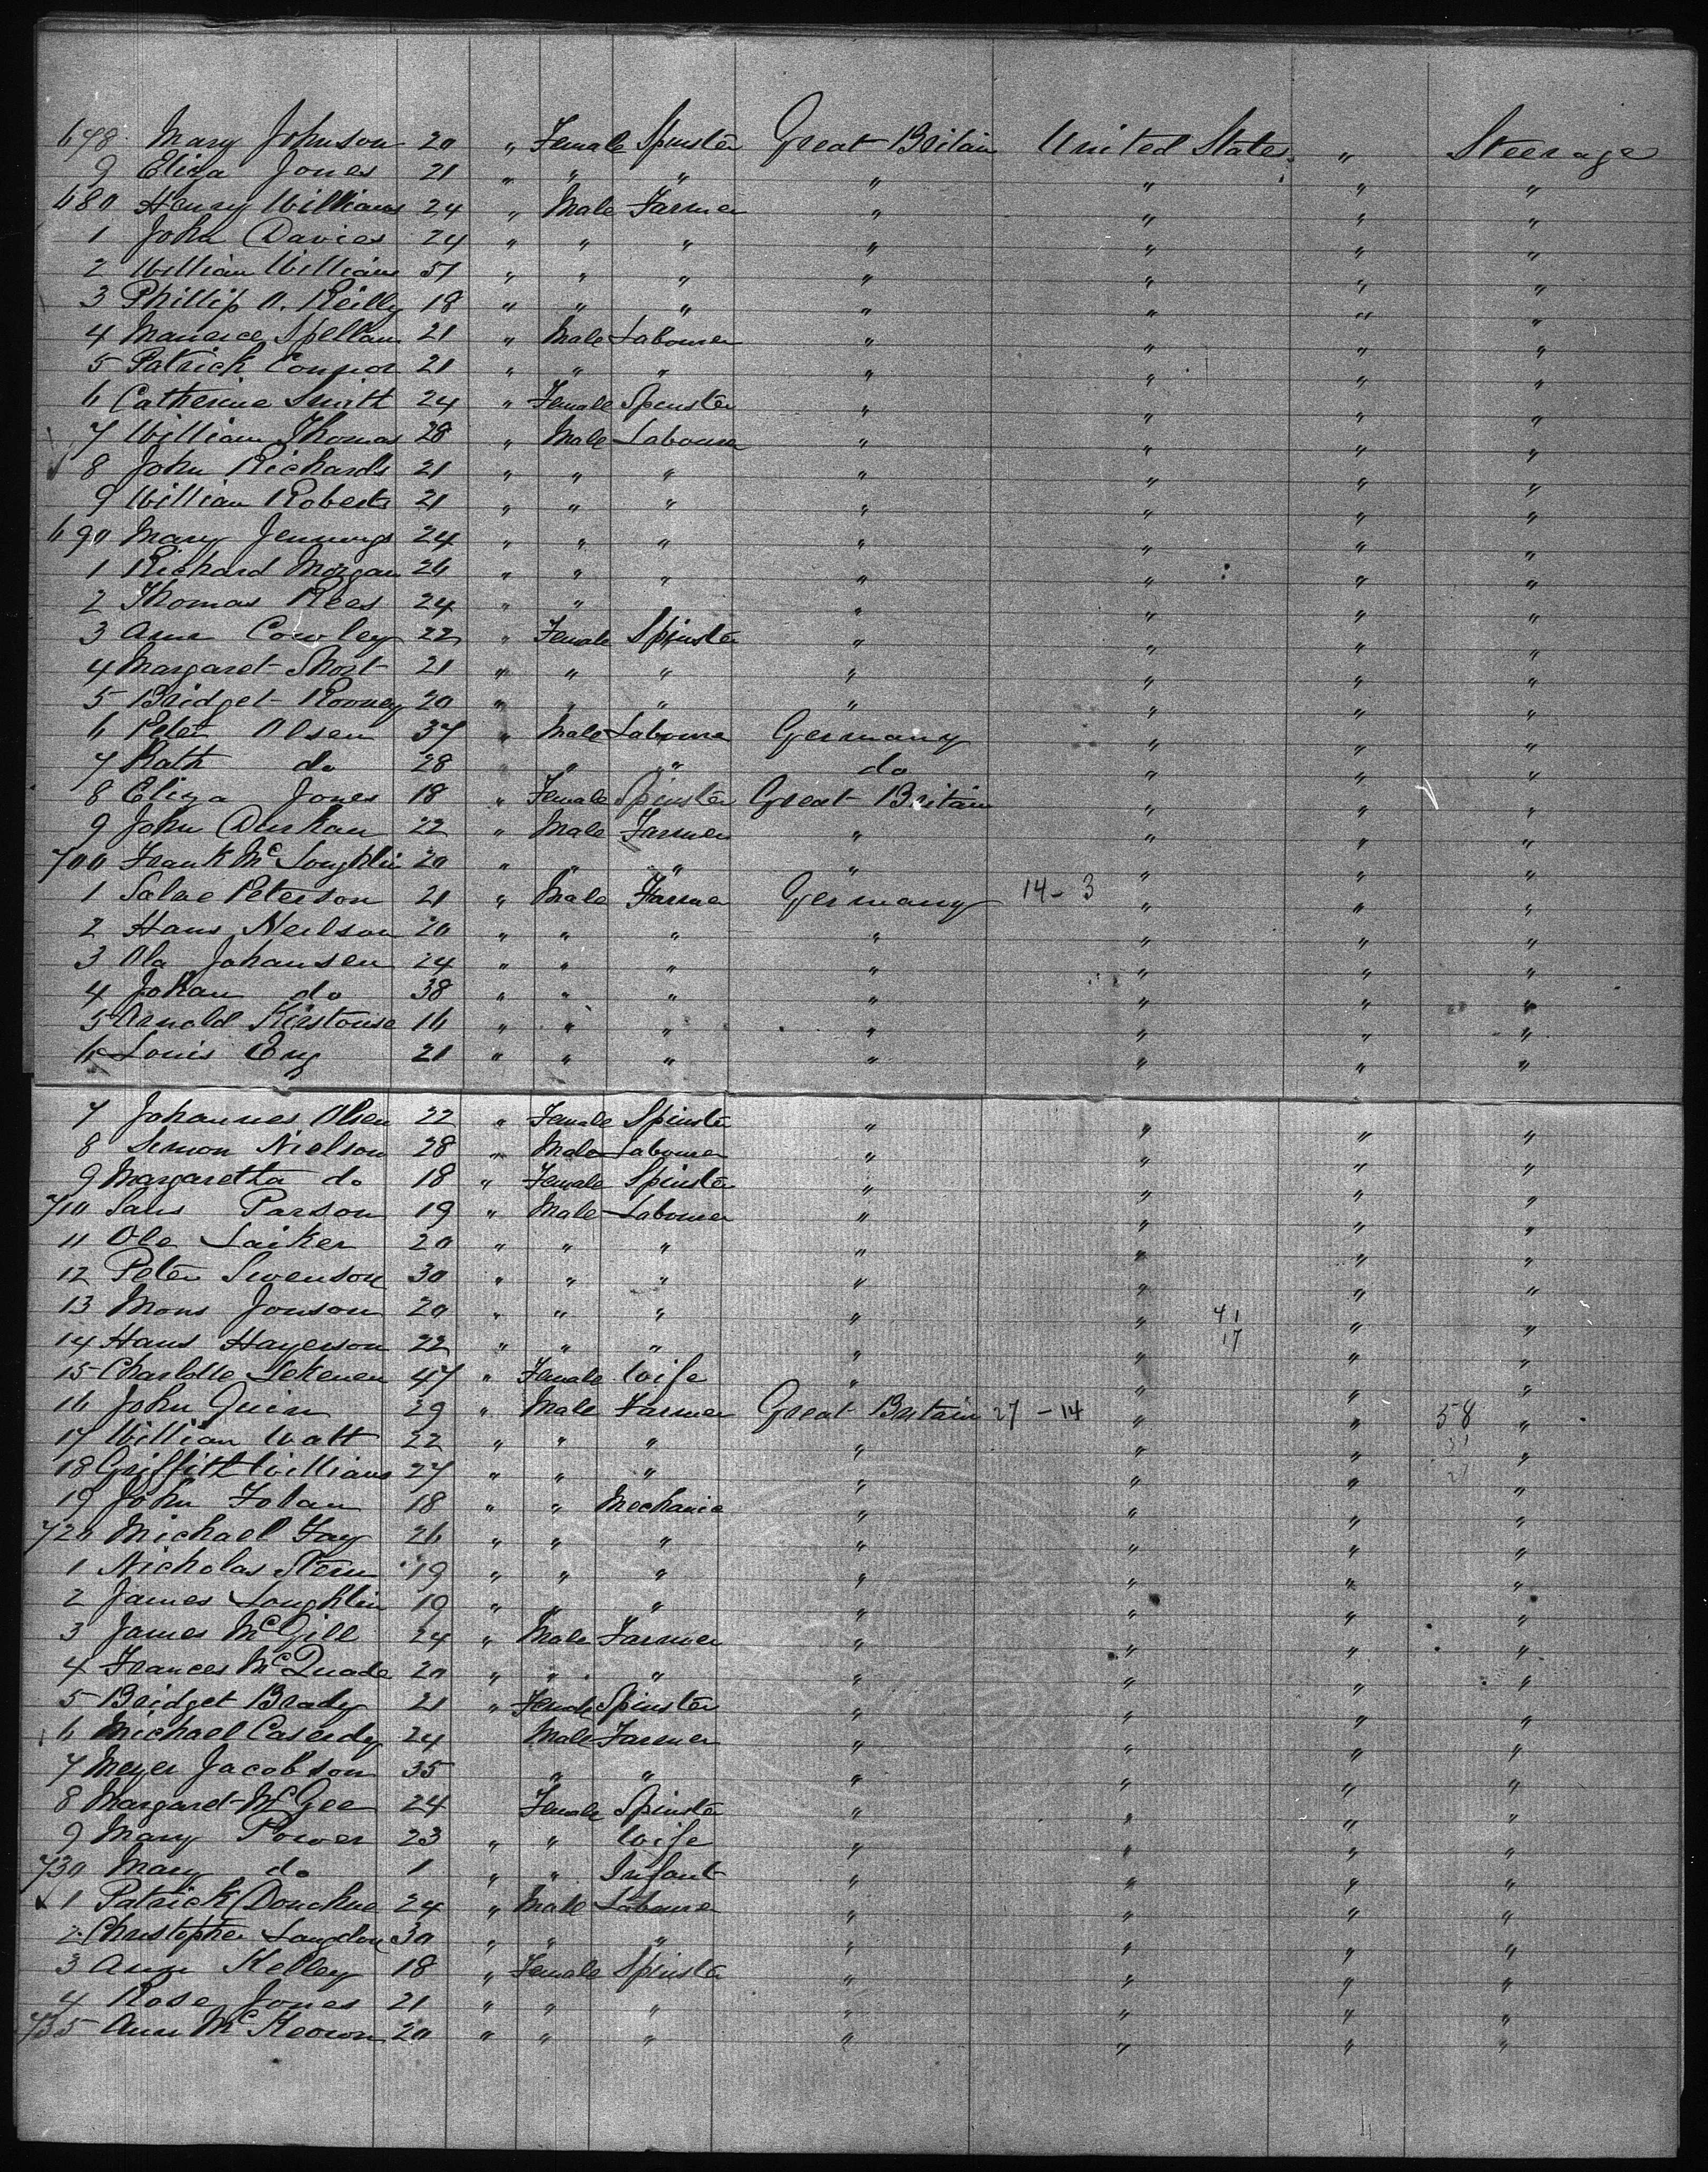 678 Mary Johnson 20 " Female Spinster Great Britain United States " Steerage
9 Eliza Jones 21 " " " " " " "
680 Henry Williams 24 " Male Farmer " " " "
1 John Davies 24 " " " " " " "
2 William Williams 51 " " " " " " "
3 Phillip O. Reilly 18 " " " " " " "
4 Maurice Spellan 21 " Male Labourer " " " "
5 Patrick Connor 21 " " " " " " "
6 Catherine Smith 24 " Female Spinster " " " "
7 William Thomas 28 " Male Labourer " " " "
8 John Richards 21 " " " " " " "
9 William Roberts 21 " " " " " " "
690 Mary Jennings 24 " " " " " " "
1 Richard Morgan 26 " " " " " " "
2 Thomas Rees 24 " " " " " "
3 Ann Cowley 22 " Female Spinster " " " "
4 Margaret Short 21 " " " " " " "
5 Bridget Rooney 20 " " " " " " "
6 Peter Olsen 37 " Male Labourer Germany " " "
7 Rath do 28 " " " do " " "
8 Eliza Jones 18 " Female Spinster Great Britain " " "
9 John Durkan 22 " Male Farmer " " " "
700 Frank McLoughlin 20 " " " " " " "
1 Peterson 21 " Male Farmer Germany 14-3 " " "
2 Hans Neilson 20 " " " " " " "
3 Ola Johansen 24 " " " " " " "
4 Johan do 38 " " " " " " "
5 Arnold 16 " " " " " " "
6 Louis 21 " " " " " " "
7 Johannes Olsen 22 " Female Spinster " " " "
8 Simon Nielson 28 " Male Labourer " " " "
9 Margaretta do 18 " Female Spinster " " " "
710 Parson 19 " Male Labourer " " " "
11 Ole Laiker 20 " " " " " " "
12 Peter Swenson 30 " " " " " " "
13 Mons Jonson 20 " " " " " 41 " "
14 Hans Hagerson 22 " " " " " 17 " "
15 Charlotte 47 " Female Wife " " " "
16 John Quin 29 " Male Farmer Great Britain 27-14 " " 58 "
17 William Watt 22 " " " " " " "
18 Griffith Williams 27 " " " " " " "
19 John Folan 18 " " Mechanic " " " "
720 Michael Fay 26 " " " " " " "
1 Nicholas 19 " " " " " " "
2 James Loughlin 19 " " " " " " "
3 James McGill 24 " Male Farmer " " " "
4 Frances McQuade 20 " " " " " " "
5 Bridget Brady 21 " Female Spinster " " " "
6 Michael Caserdy 24 Male Farmer " " " "
7 Meyer Jacobson 35 " " " " " "
8 Margaret McGee 24 Female Spinster " " " "
9 Mary Power 23 " " Wife " " " "
730 Mary do 1 " " Infant " " " "
1 Patrick Donohue 24 " Male Labourer " " " "
2 Christopher Langdon 30 " " " " " " "
3 Ann Kelley 18 " Female Spinster " " " "
4 Rose Jones 21 " " " " " " "
735 Ann McKeown 20 " " " " " " "